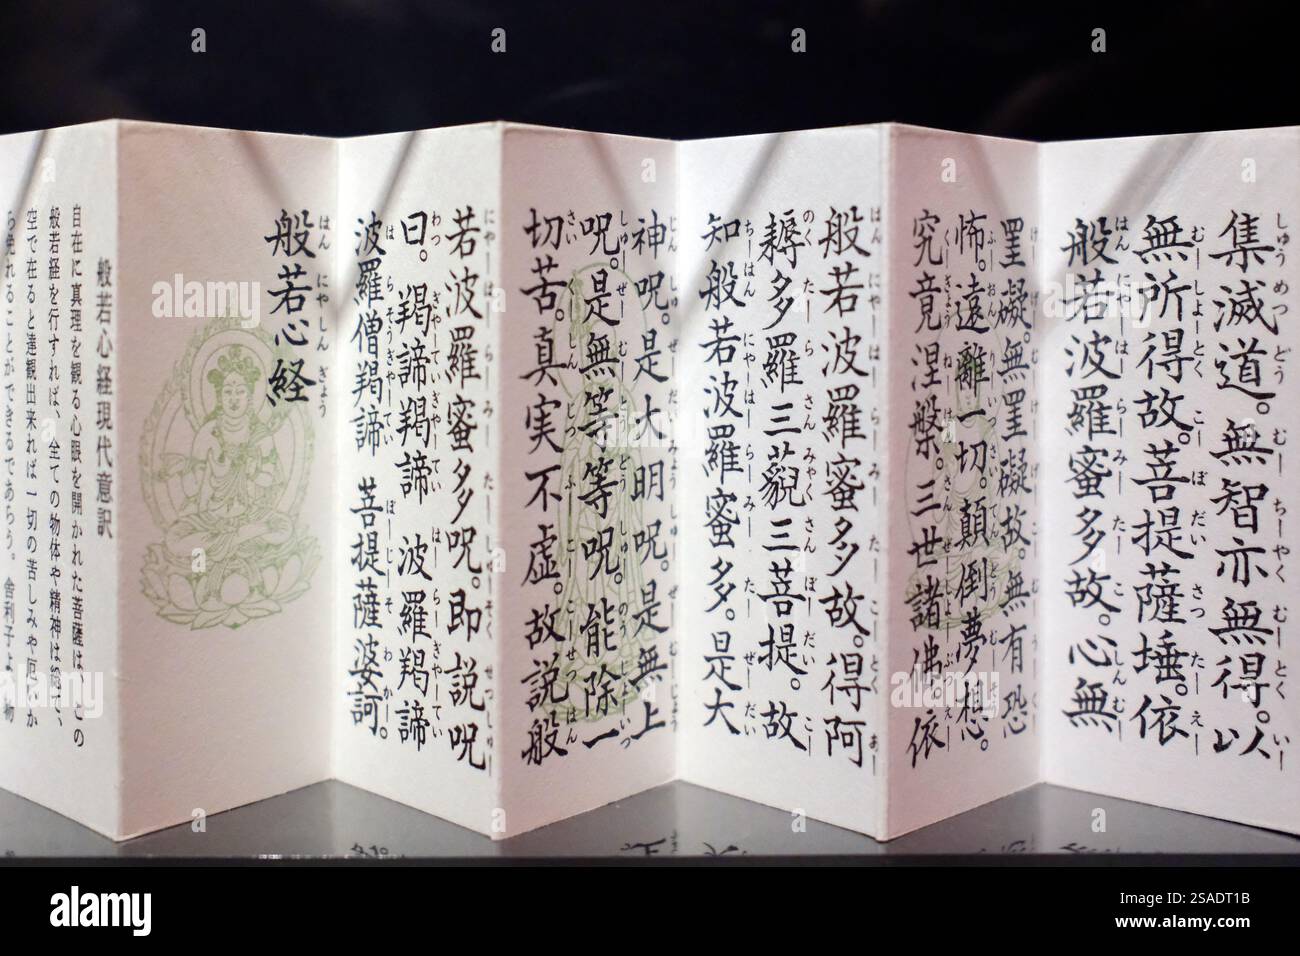 集滅道。無智亦無得。以
無所得故。菩提薩埵。依
般若波羅蜜多故。心無
罣礙。無罣礙故。無有恐
怖。遠離一切。顛倒夢想。
究竟涅槃。三世諸佛。依
般若波羅蜜多故。得阿
耨多羅三藐三菩提。故
知般若波羅蜜多。是大
神呪。是大明呪。是無上
呪。是無等等呪。能除一
切苦。真実不虚。故説般
若波羅蜜多呪。即説呪
曰。羯諦羯諦 波羅羯諦
波羅僧羯諦 菩提薩婆訶。
般若心経
はんにゃしんぎょう
般若心経現代意訳
自在に真理を観る心眼を開かれた菩薩は、この
般若経を行ずれば、全ての物体や精神は総て、
空で在ると達観出来れば一切の苦しみや厄いか
ら免れることができるであろう。舎利子よ、物
alamy
Image ID: 2SADT1B
www.alamy.com